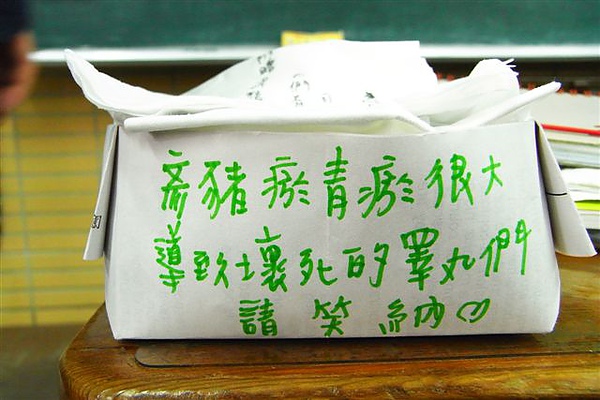 斎豬瘀青瘀很大
導致壞死的睪丸們
請笑納♡